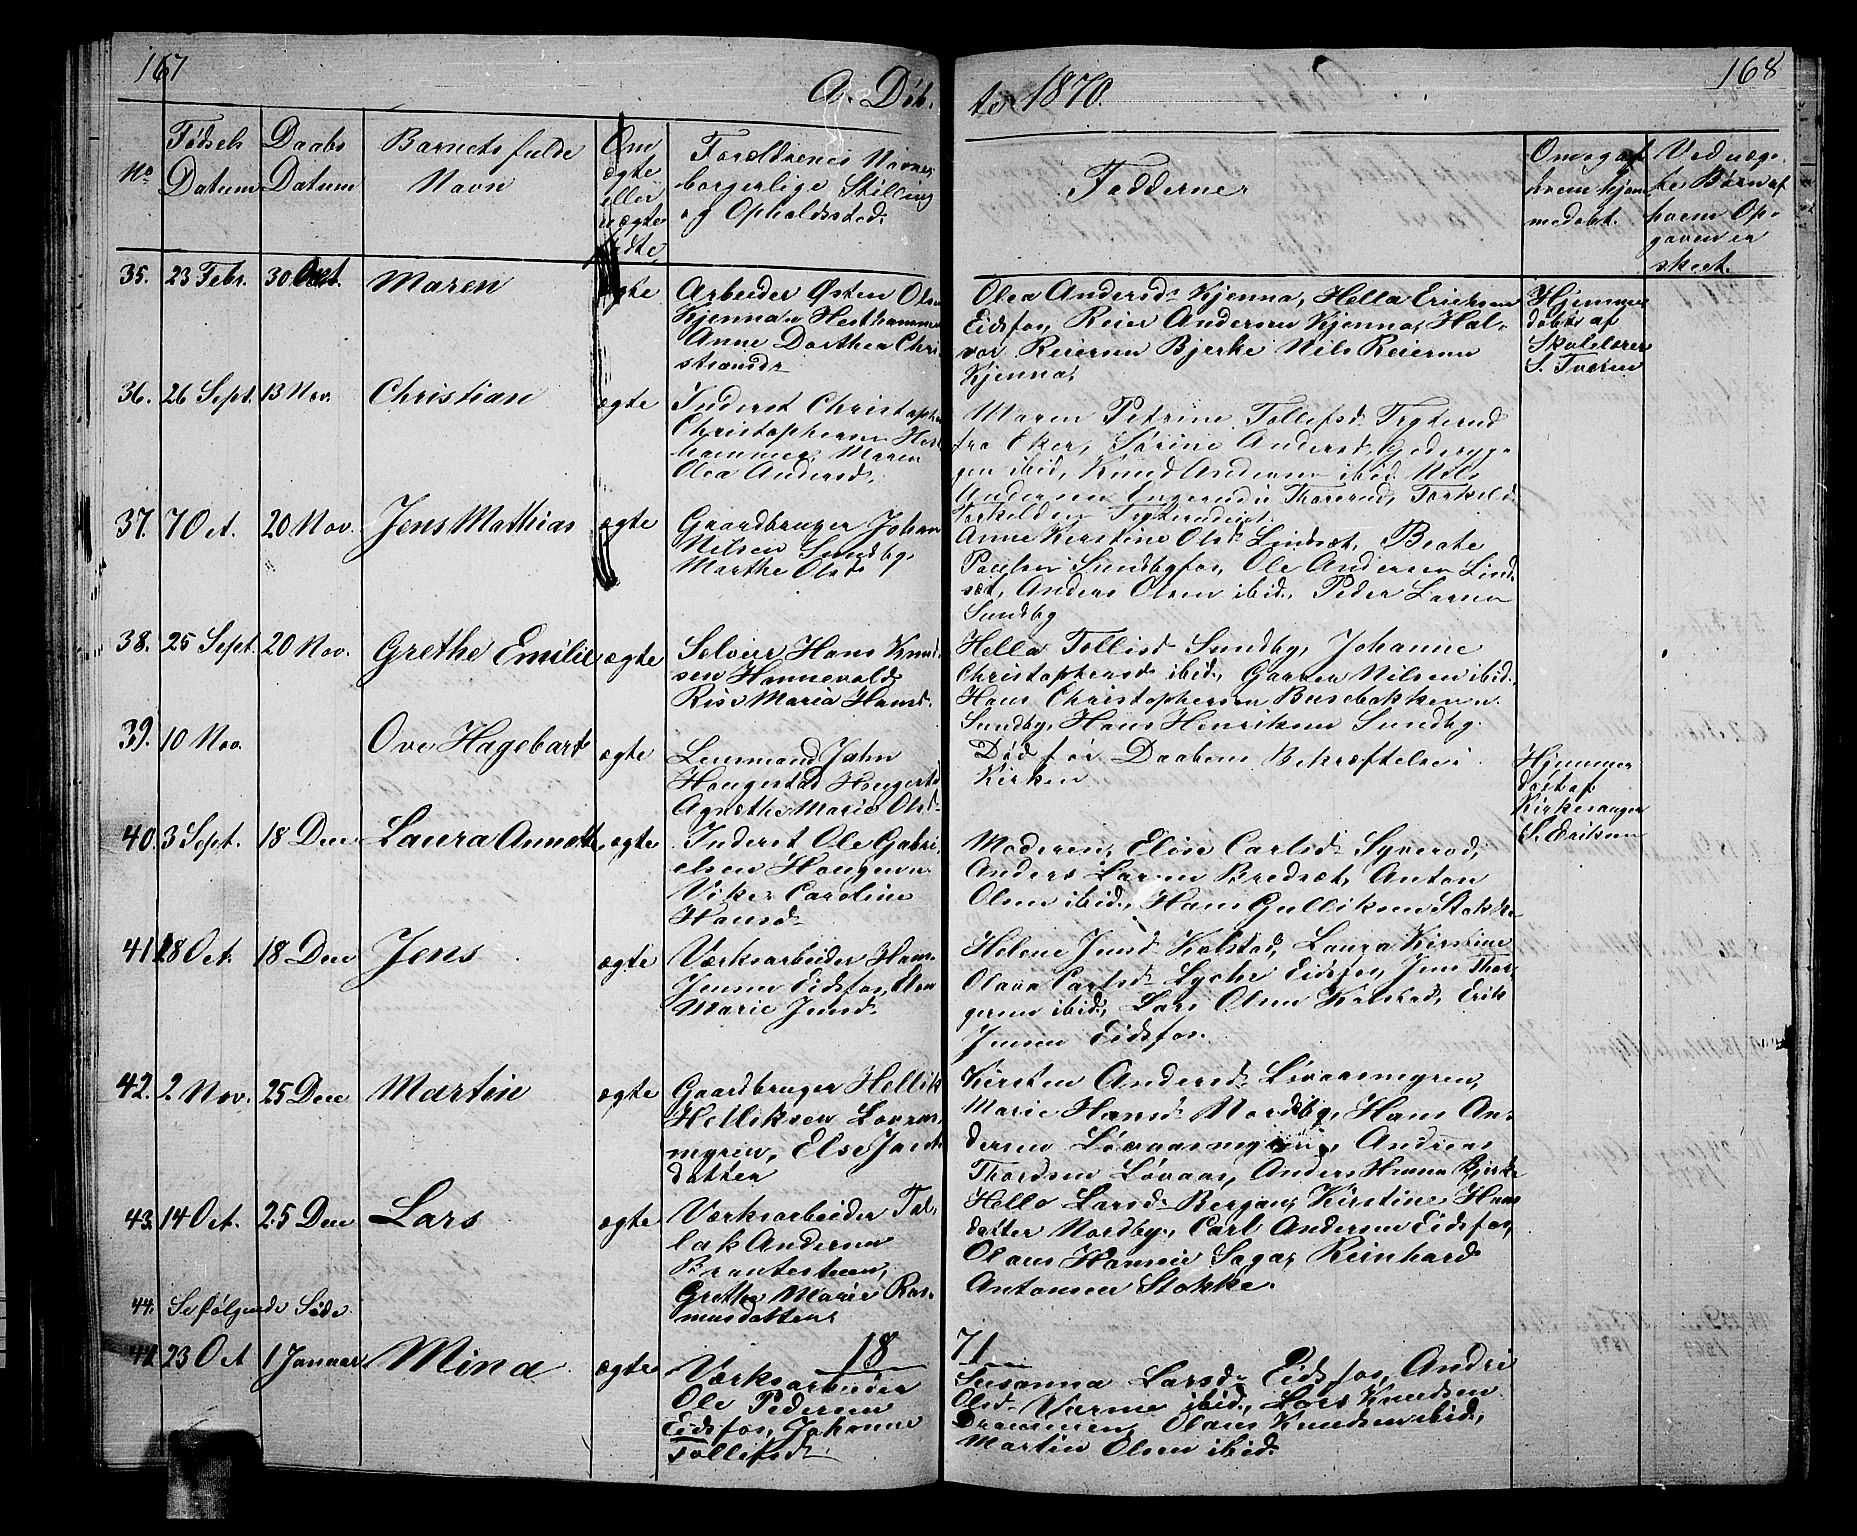 167
A. Døb
te 1870.
168
No
Fødsels Datum
Daabs Datum
Barnets fulde Navn
Om ægte eller uægte fødte
Forældrenes Navne, borgerlige Stilling og Opholdssted.
Fadderne
Om og af hvem hjemmedøbt.
Ved uægte Børn af hvem Opgaven er skeet.
35. 23 Febr. 30 Oct. Maren ægte
Arbeider Østen Olsen
Kjenna Hesthammer
Anne Dorthea Chri
stiansdr
Olea Andersd Kjenna, Hella Eriksen
Eidsfos, Reier Andersen Kjenna, Hal-
vor Reiersen Bjerke Nils Reiersen
Kjenna,
Hjemme
døbt af
Skolelærer
S. Tveten
36. 26 Sept. 13 Nov. Christian ægte
Inderst Christopher
Christophersen Hest
hammer, Maren
Olea Andersd.
Maren Petrine Tollefsd. Trgterud
fra Eker, Sørine Andersd. Gederyg-
gen ibid, Knud Andersen ibid. Nils
Andersen Engerud i Thorerud, Torkild
Torkildsen
37. 7 Oct. 20 Nov. Jens Mathias ægte
Gaardbruger Johan
Nilsen Sundby,
Marthe Olsd
Anne Kerstine Olsd Lindsæt, Beate
Paulsen Sundbyfos, Ole Andersen Lind
sæt, Anders Olsen ibid, Peder Larsen
Sundby
38. 25 Sept. 20 Nov. Grethe Emilie ægte
Selveier Hans Knud
sen Hannevold,
Risi Maria Hansd.
Hella Tollisd Sundby, Johanne
Christophersd ibid, Garmen Nilsen ibid.
Hans Christophersen Busebakken u.
Sundby, Hans Henriksen Sundby.
39. 10 Nov. Ove Hagebart ægte
Lensmand Jahn
Haugestad Haugestd
Agnethe Marie Olsd
Død før Daabens Bekræftelse i
Kirken
Hjemme
døbt af
Kirkesanger
S. Eriksen
40. 3 Sept. 18 Dec Laura Annette ægte
Inderst Ole Gabri
elsen Haugen u.
Viker Caroline
Hansd
Moderen, Elise Carlsd Syverød,
Anders Larsen Bredsæt, Anton
Olsen ibid, Hans Gulliksen Stokke
41. 18 Oct. 18 Dec Jens ægte
Værksarbeider Hans
Jensen Eidsfos, Elen
Marie Jensd.
Helene Jensd Kolstad, Laura Kirstine
Olava Carlsd Lyche Eidsfos, Jens Thor
gersen ibid, Lars Olsen Kolstad, Erik
Jensen Eidsfos.
42. 2 Nov. 25 Dec Martin ægte
Gaardbruger Hellik
Helliksen Lovaas
myren, Else Jacob
datter
Kirsten Andersd Løvaasmyren,
Marie Hansd Nordby, Hans An-
dersen Løvaasmyren, Andreas
Thordsen Løvaas, Anders Hansen Bjerke
43. 14 Oct. 25 Dec Lars ægte
Værksarbeider Tol-
lak Andersen
Brantesteen,
Grethe Marie Ras-
musdatter
Helle Larsd Bergan, Kirstine Hans
datter Nordby, Carl Andersen Eidsfos,
Olaus Hansen Saga, Reinhard
Antonsen Stokke.
44. Se følgende Side
18
71
44. 23 Oct 1 Januar Mina ægte
Værksarbeider
Ole Pedersen
Eidsfos, Johanne
Tollefsd
Susanna Larsd Eidsfos, Andri
Olsd Varme ibid, Lars Knudsen
Drammen, Olaus Knudsen ibid,
Martin Olsen ibid.